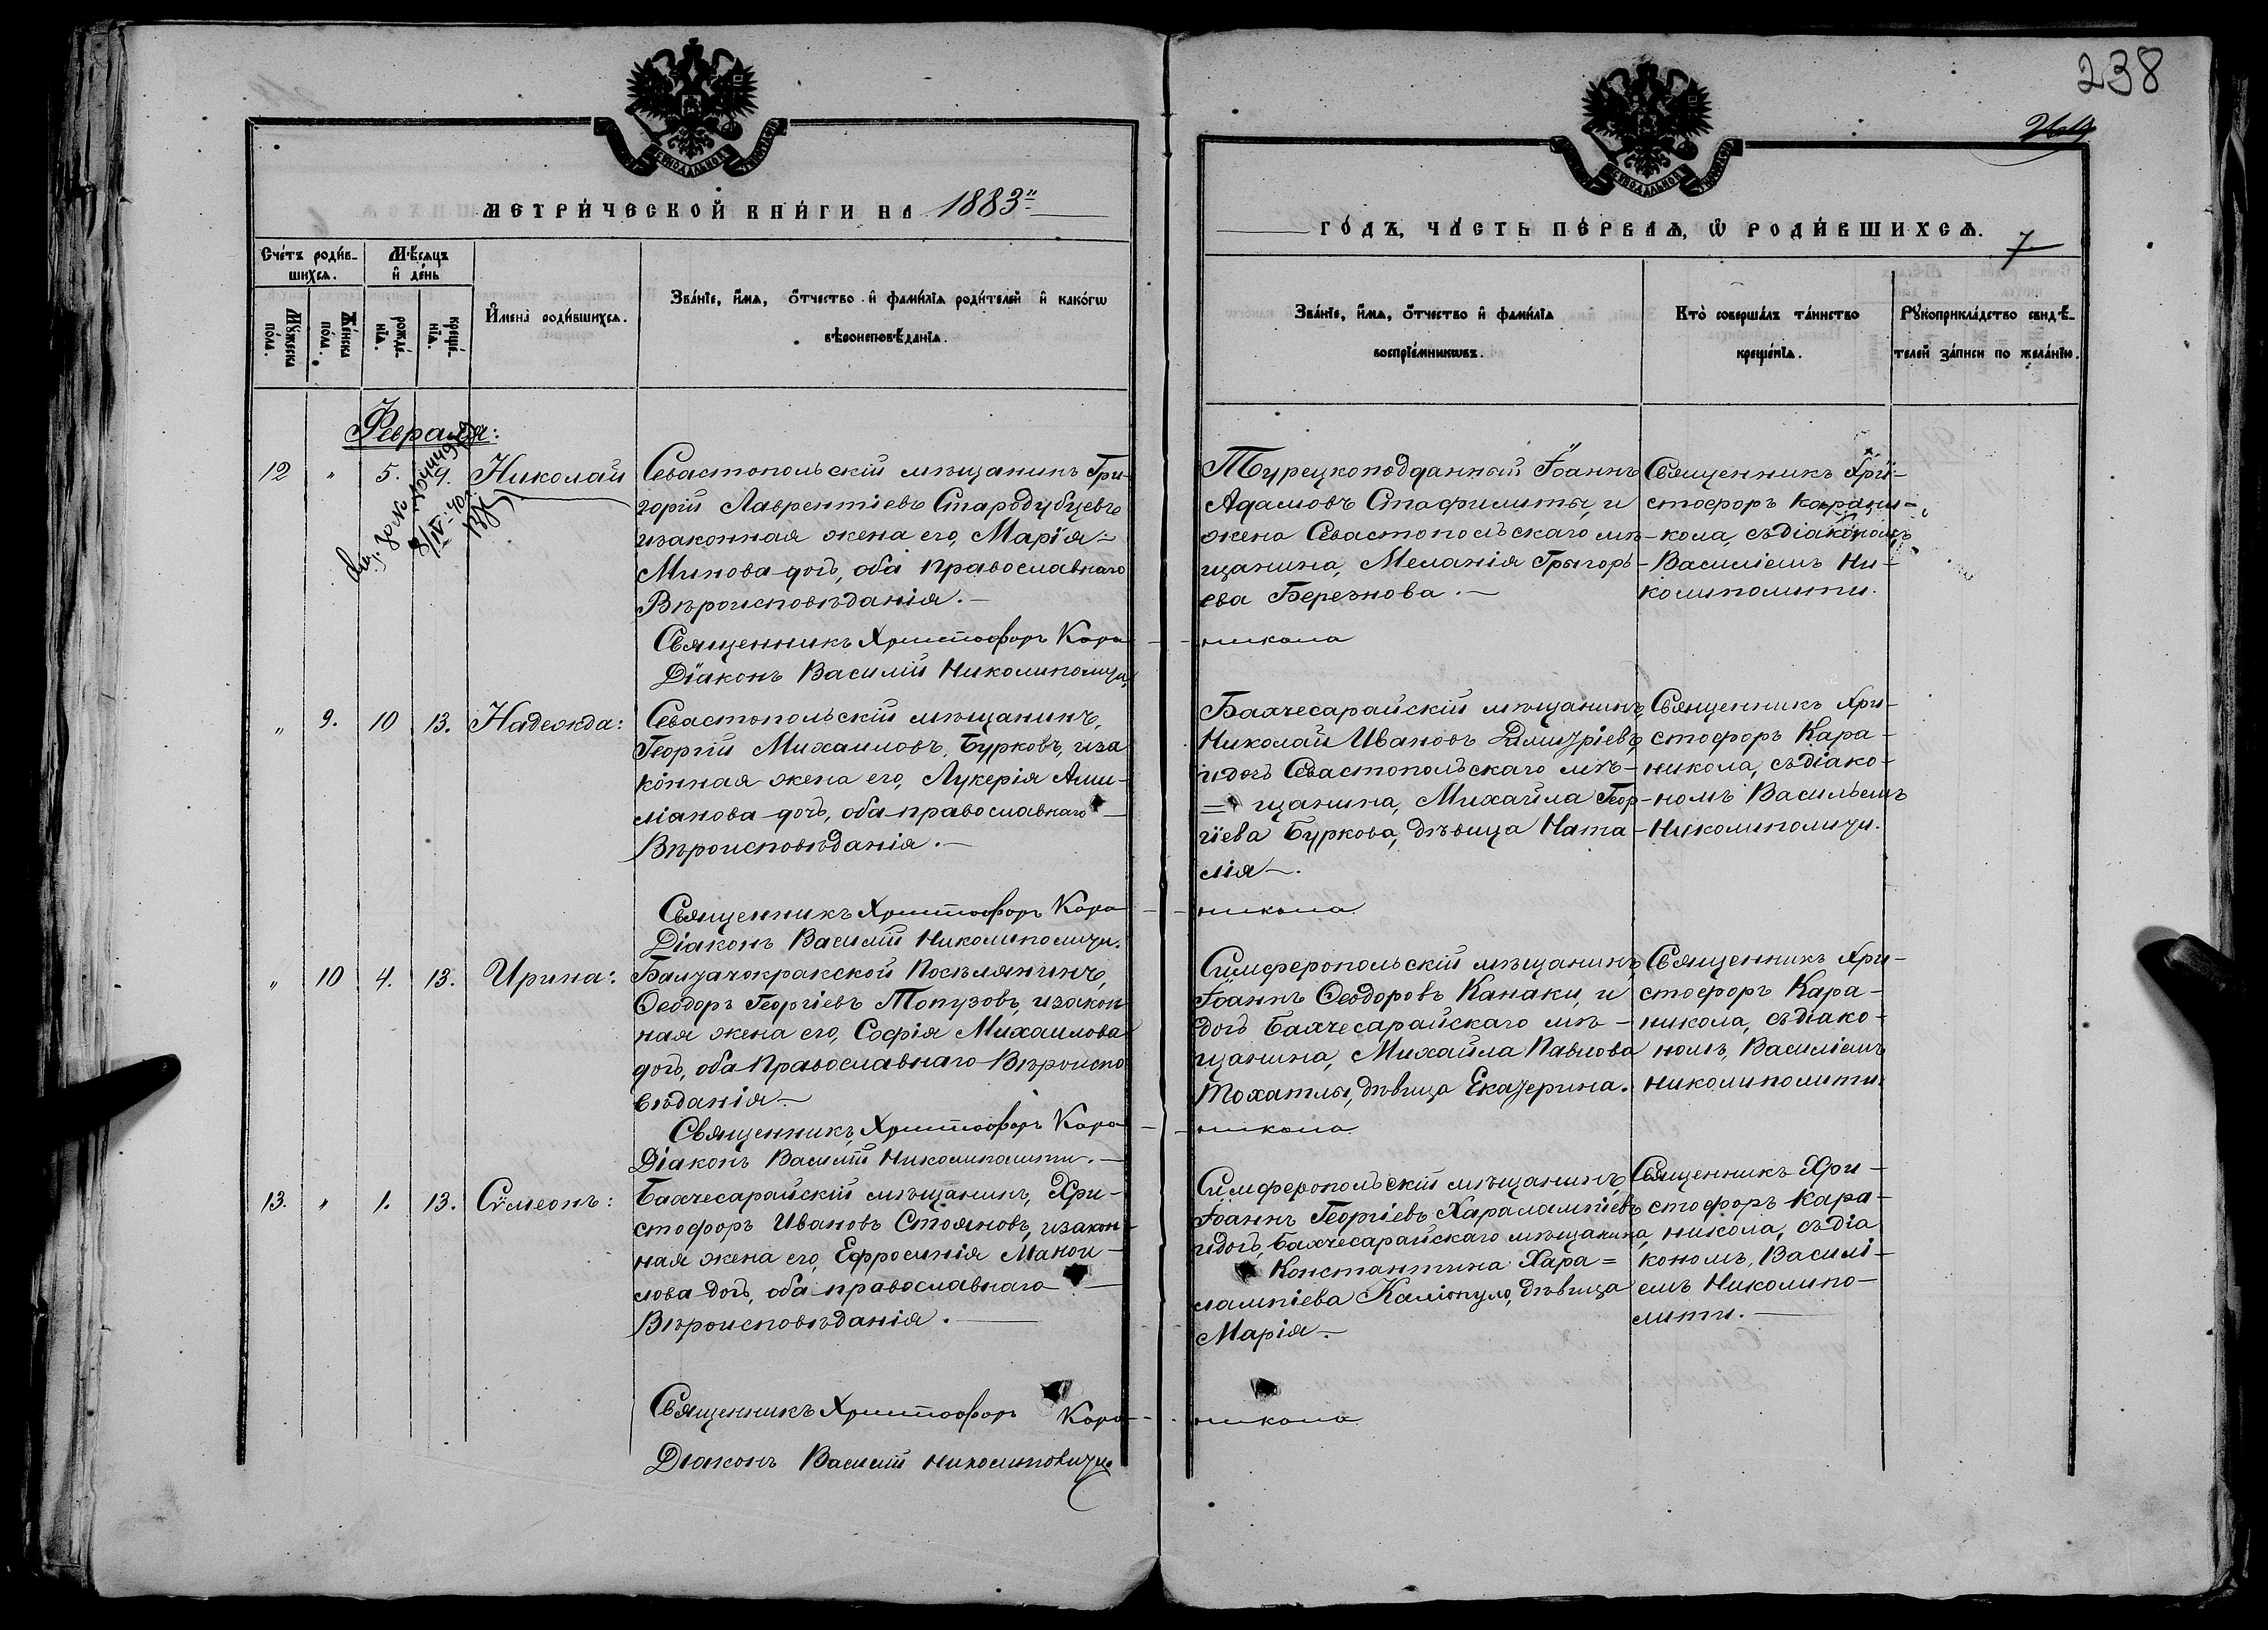 238
СѴНОДАЛЬНОЙ
СѴНОДАЛЬНОЙ
МЕТРИ́ЧЕСКОЙ КНИ́ГИ НА 1883й
ГО́ДЪ, ЧА́СТЬ ПЕ́РВАѦ, Ѡ РОДИ́ВШИХСѦ.
7
Сче́тъ роди́в-
шихсѧ.
Мꙋ́жеска по́ла.
Же́нска по́ла.
Мѣ́сѧцъ
и де́нь
рожде́-
нїѧ.
креще́-
нїѧ.
И҆мена̀ роди́вшихсѧ.
Зва́нїе, и҆́мѧ, ѻ҆́тчество и҆ фами́лїѧ роди́телей и҆ како́гѡ
вѣроисповѣ́данїѧ.
Зва́нїе, и҆́мѧ, ѻ҆́тчество и҆ фами́лїѧ
воспрїе́мникѡвъ.
Кто̀ соверша́лъ та́инство
креще́нїѧ.
Рꙋкоприкла́дство свидѣ́-
телей за́писи по жела́нїю.
Февраля:
12 " 5. 9. Николай
8/IV-40г.
Севастопольскій мѣщанинъ Гри-
горій Лаврентіевъ Стародубцевъ
изаконная жена его, Марія
Минова дочь, оба православнаго
Вѣроисповѣданія.—
Священникъ Христофоръ Кара-
Діаконъ Василій Николиполити
Турецкоподданный Іоаннъ
Адамовъ Стафилиты, и
жена Севастопольскаго мѣ-
щанина, Меланія Григорь-
ева Березнова.—
никола
Священникъ Хри-
стофоръ Карани-
кола, съдіакономъ
Василіемъ Ни-
колиполити.
" 9. 10 13. Надежда:
Севастопольскій мѣщанинъ,
Георгій Михаиловъ Бурковъ, иза
конная жена его, Лукерія Ами-
ліанова дочь, оба православнаго—
Вѣроисповѣданія.—
Священникъ Христофоръ Кара-
Діаконъ Василій Николиполити.
Бахчесарайскій мѣщанинъ
Николай Ивановъ Димитріевъ
идочь Севастопольскаго мѣ-
= щанина, Михаила Геор-
гіева Буркова, дѣвица Ната-
лія—.
никола
Священникъ Хри-
стофоръ Кара-
никола, съдіако-
номъ Васильемъ
Николиполити.
" 10 4. 13. Ирина:
Балтачокракской Поселянинъ,
Ѳеодоръ Георгіевъ Топузовъ, изакон
ная жена его, Софія Михаилова
дочь, оба Православнаго Вѣроиспо
вѣданія—
Священникъ Христофоръ Кара-
Діаконъ Василій Николиполити.—
Симферопольскій мѣщанинъ
Іоаннъ Ѳеодоровъ Канаки, и
дочь Бахчесарайскаго мѣ-
щанина, Михаила Павлова
Тохатлы, дѣвица Екатерина.
никола
Священникъ Хри-
стофоръ Кара-
никола, съдіако-
номъ, Василіемъ
Николиполити.
13. " 1. 13. Сѵмеонъ:
Бахчесарайскій мѣщанинъ, Хри-
стофоръ Ивановъ Стояновъ, изакон-
ная жена его, Ефросинія Манои-
лова дочь, оба православнаго—
Вѣроисповѣданія.—
Священникъ Христофоръ Кара-
Діаконъ Василій
Симферопольскій мѣщанинъ,
Іоаннъ Георгіевъ Харалампіевъ
идочь, Бахчесарайскаго мѣщанина,
Константина Хара=
лампіева Каліопуло, дѣвица
Марія—
никола
Священникъ Хри-
стофоръ Кара-
никола, съдіа
кономъ, Василі-
емъ Николипо-
лити.—